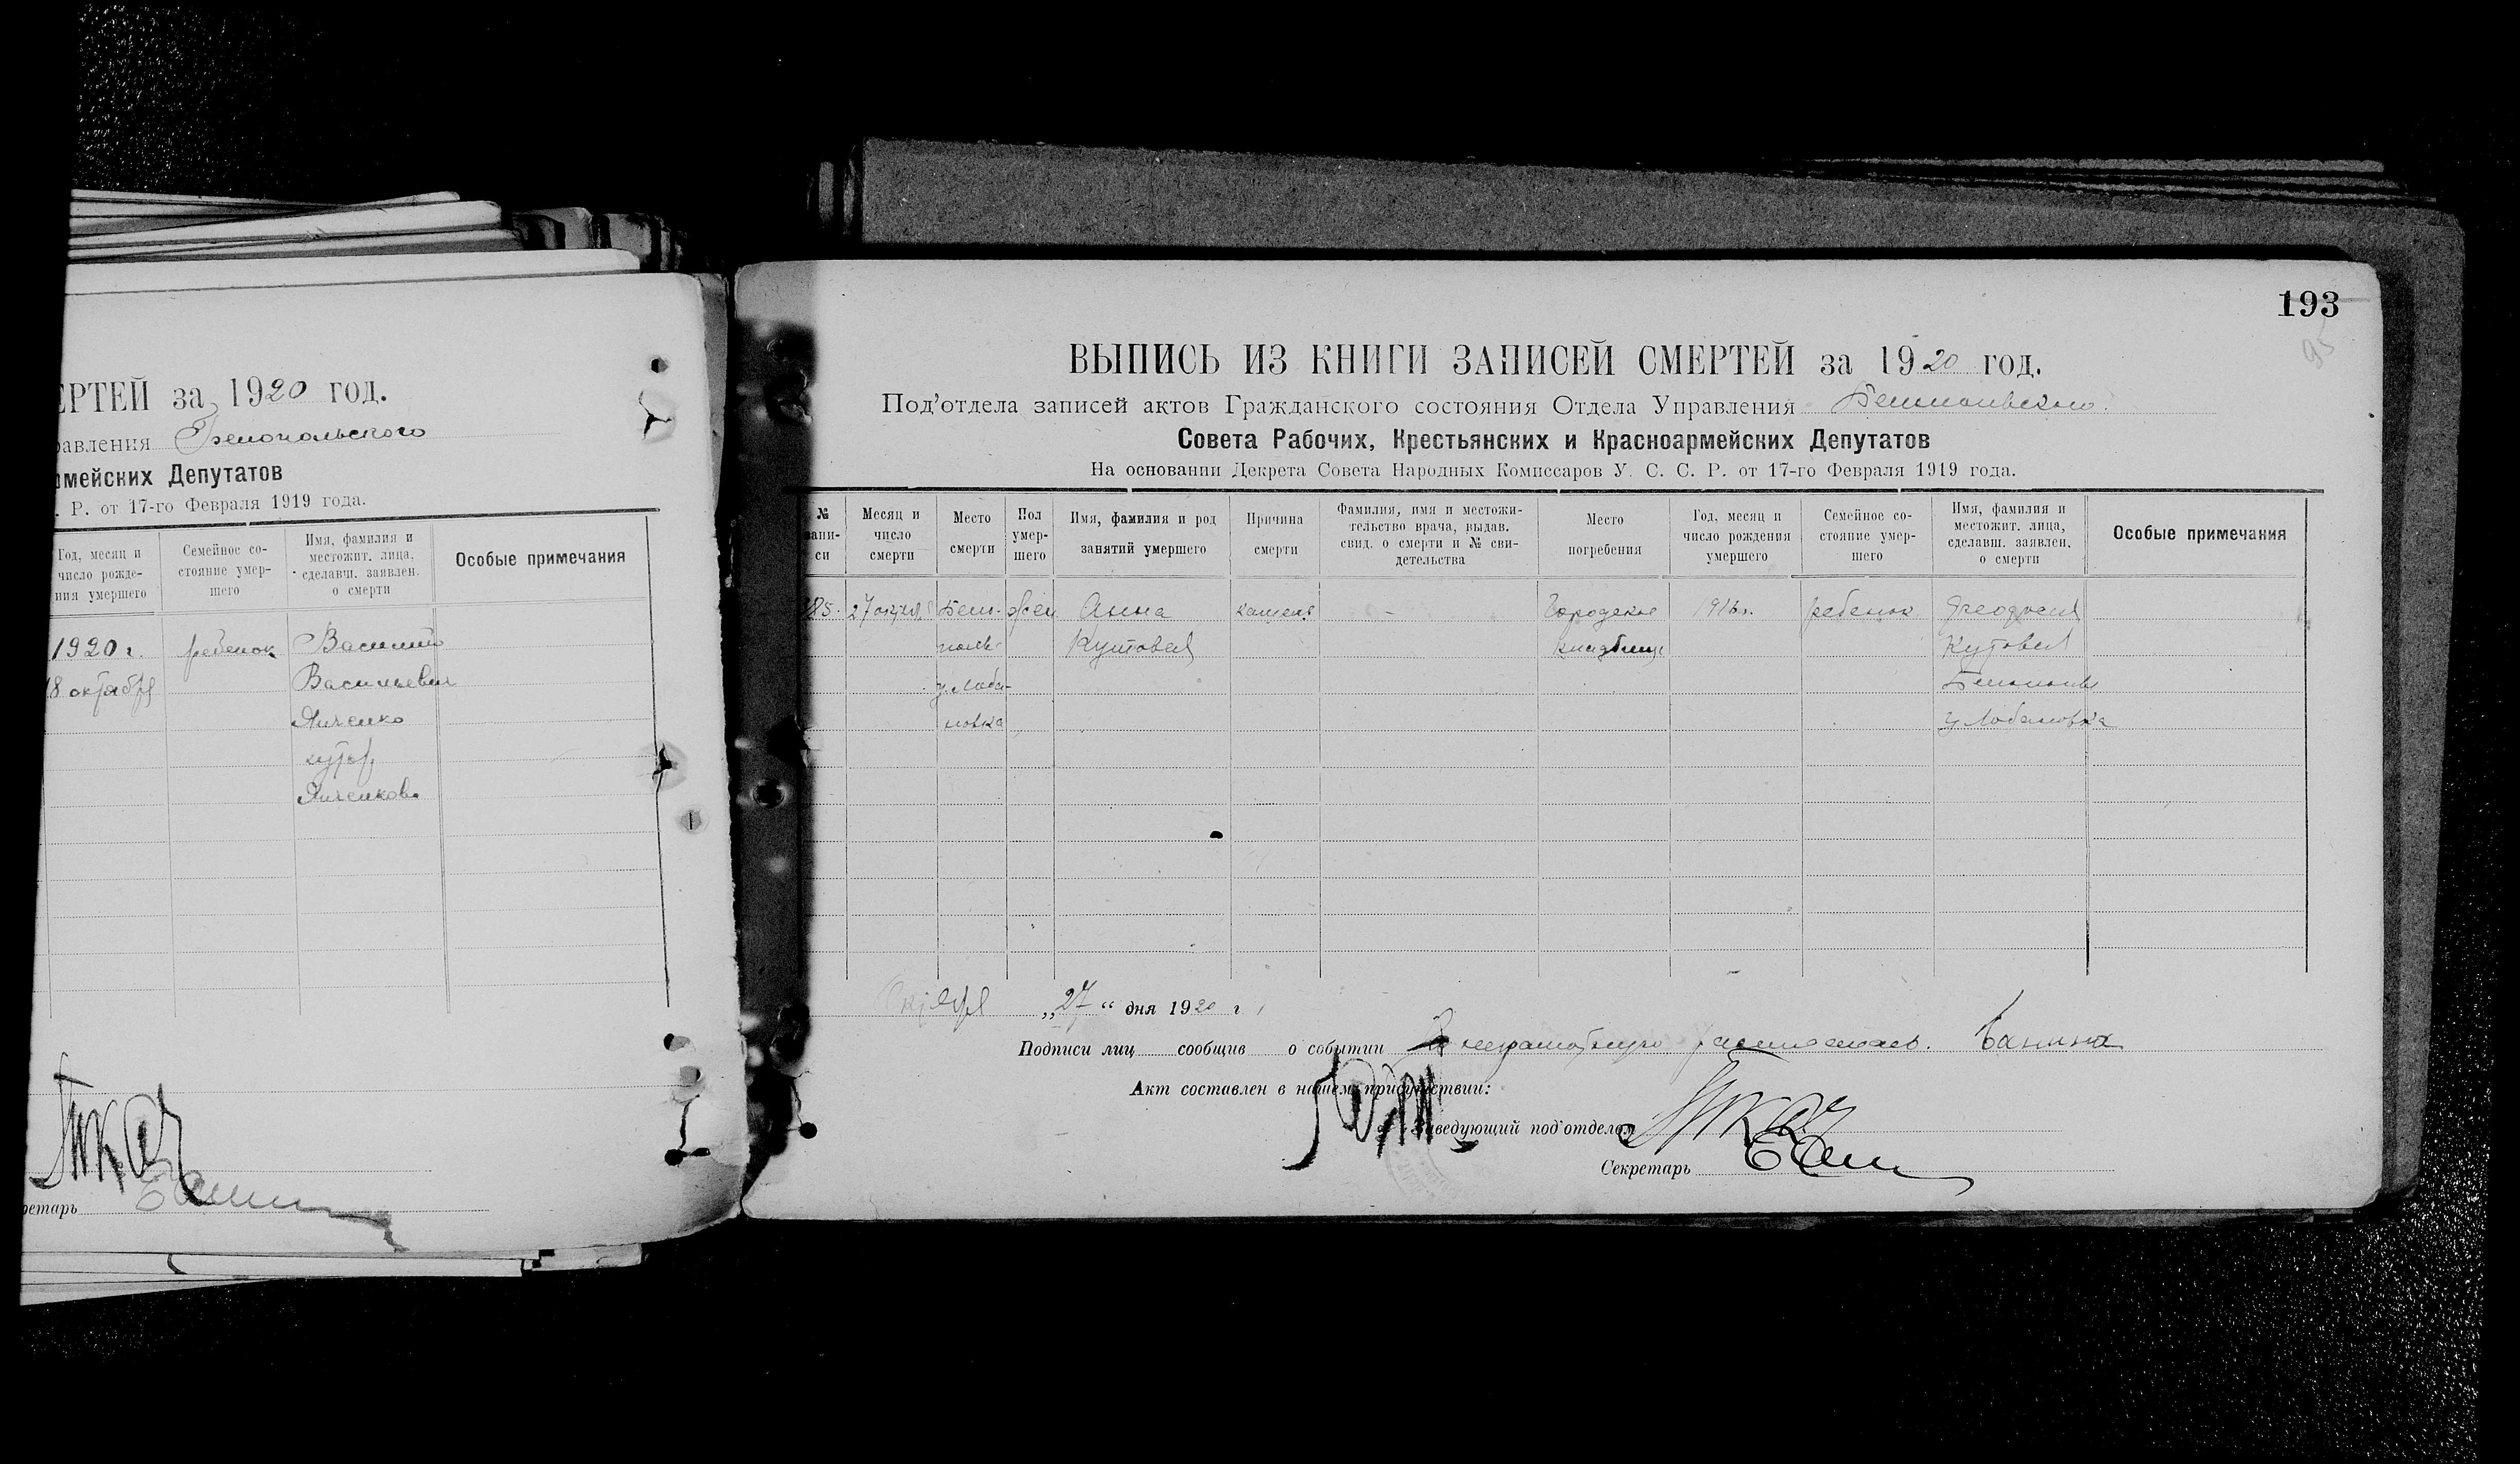 ЕРТЕЙ за 1920 год.
равления
рмейских Депутатов
. Р. от 17-го Февраля 1919 года.
Год, месяц и число рожде-ния умершего
Семейное со-стояние умер-шего
Имя, фамилия и местожит. лица, сделавш. заявлен. о смерти
Особые примечания
1920 г. ребенок Василий
18 октября Васильевич
Янченко
хутор
Янченково
ретарь
193
95
ВЫПИСЬ ИЗ КНИГИ ЗАПИСЕЙ СМЕРТЕЙ за 1920 год.
Под'отдела записей актов Гражданского состояния Отдела Управления
Совета Рабочих, Крестьянских и Красноармейских Депутатов
На основании Декрета Совета Народных Комиссаров У. С. С. Р. от 17-го Февраля 1919 года.
№ запи-си
Месяц и число смерти
Место смерти
Пол умер-шего
Имя, фамилия и род занятий умершего
Причина смерти
Фамилия, имя и местожи-тельство врача, выдав. свид. о смерти и № сви-детельства
Место погребения
Год, месяц и число рождения умершего
Семейное со-стояние умер-шего
Имя, фамилия и местожит. лица, сделавш. заявлен. о смерти
Особые примечания
385. 27 октяб жен Анна кашель - Городское 1916 г. ребенок Феодосия
Кутовая кладбище Кутовая
у. Лоба-
новка у Лобановка
Октября „27“ дня 1920 г
Подписи лиц сообщив о событии
Акт составлен в нашем присутствии:
Заведующий под'отделом
Секретарь